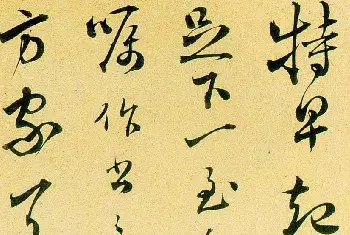 特早起
足下一
嘱作书
方家